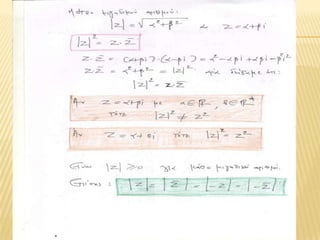 Μέτρο μιγαδικού αριθμού:
|z| = √α²+β² αν z = α+βi
|z|² = z · z̄
z · z̄ = (α+βi) · (α-βi) = α² - αβi + αβi - β²i²
z · z̄ = α²+β² = |z|² άρα
|z|² = z · z̄
Αν z = α+βi με α∈ℝ, β∈ℝ*
τότε |z|² ≠ z²
Αν z = α+0i τότε |z|² = z²
Είναι |z| ≥ 0 για κάθε μιγαδικό αριθμό.
Επίσης: |z| = |z̄| = |-z| = |-z̄|